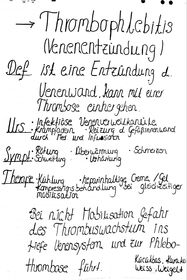 → Thrombophlebitis
(Venenentzündung)
Def ist eine Entzündung d.
Venenwand, kann mit einer
Thrombose einhergehen
Urs • Infektiöse Venenverweilkanüle
• Krampfadern • Reizung d. Gefäßinnenwand
durch Med. und Infusionen
Sympt • Rötung • Überwärmung • Schmerzen
• Schwellung • Verhärtung
Therapie • Kühlung • Heparinhaltige Creme/Gel
• Kompressionsbehandlung bei gleichzeitiger
mobilisation
Bei nicht Mobilisation Gefahr
des Thrombuswachstum ins
tiefe Venensystem und zur Phlebo-
thrombose führt.
Weiss,